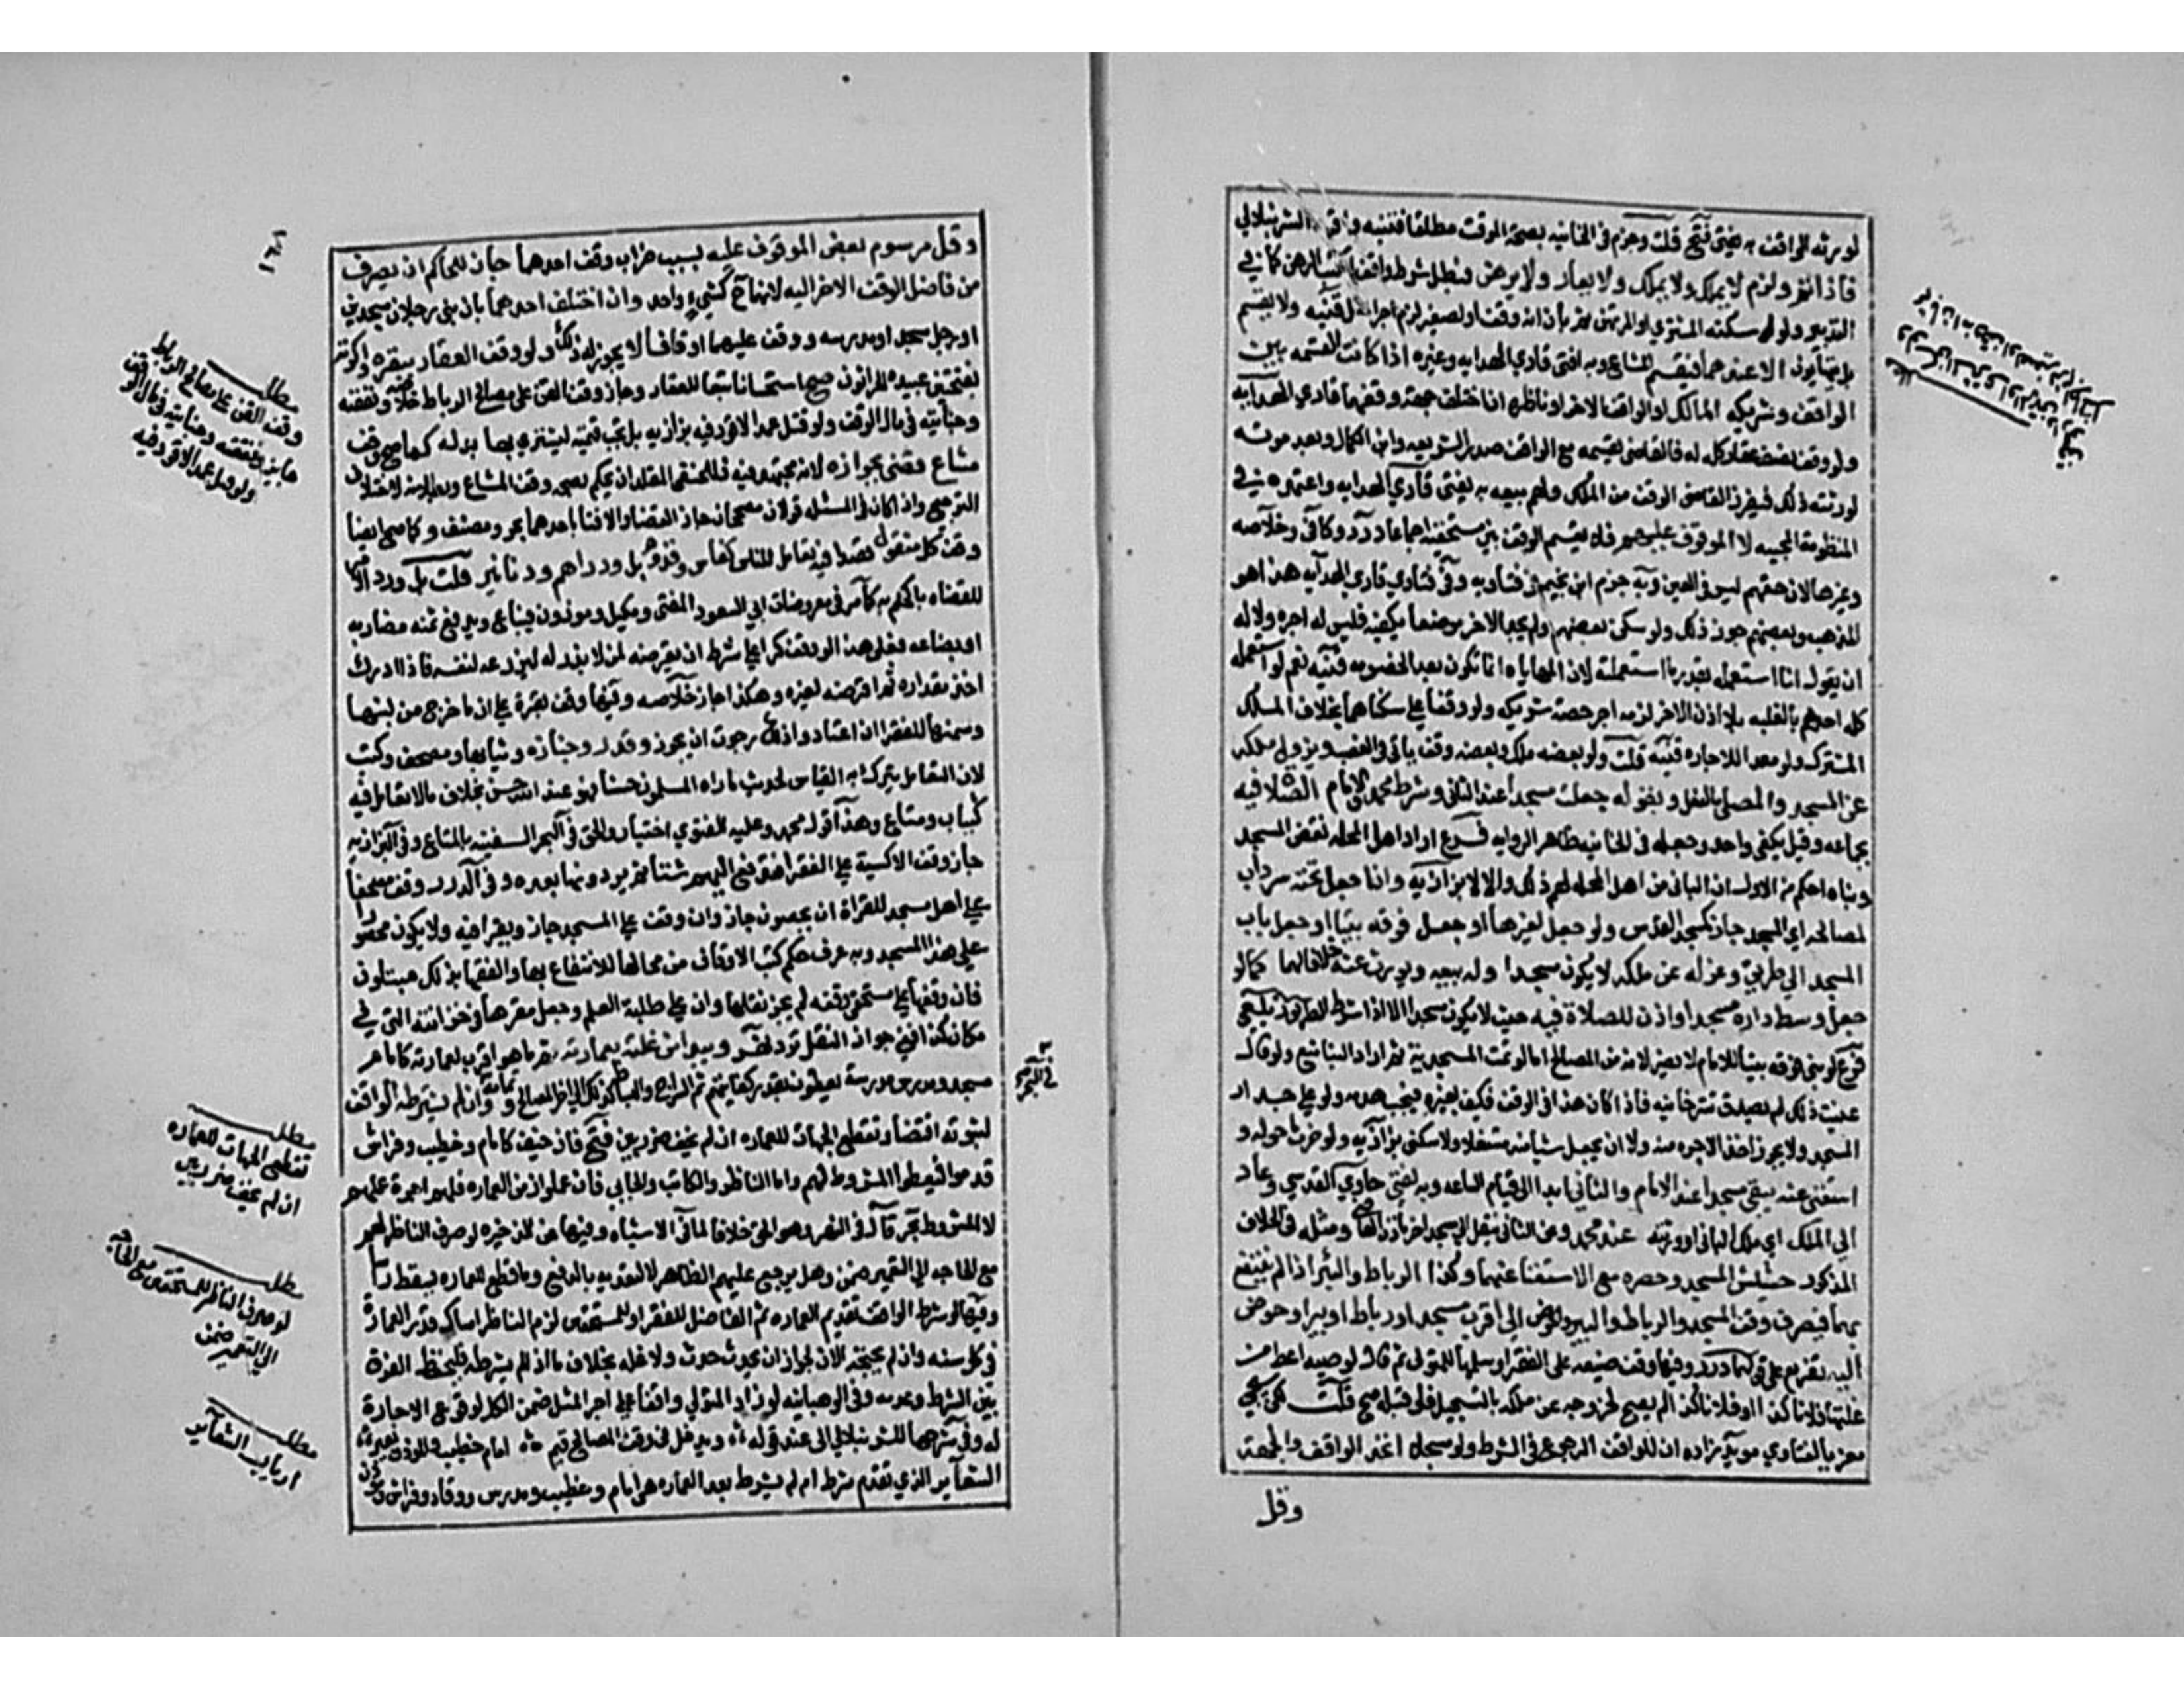 لورثه الواقف به يفتى فتح قلت وجزم في الخانيه بصحة الوقف مطلقا فتنبه واقره الشرنبلالي
فاذا تم ولزم لا يملك ولا يملك ولا يعار ولا يرهن فبطل شرط واقف الكتب الرهن كما في
التدبير ولو سكنه المشتري او المرتهن ثم بان انه وقف او لصغير لزم اجر المثل قنيه ولا يقسم
بل يتهايئون الا عندهما فيقسم المشاع وبه افتى قاري الهدايه وغيره اذا كانت القسمه بين
الواقف وشريكه المالك او الواقف الاخر او ناظره ان اختلف جهة وقفهما قاري الهدايه
ولو وقف نصف عقار كله له فالقاضي يقسمه مع الواقف صدر الشريعه وابن الكمال وبعد موته
لورثته ذلك فيفرز القاضي الوقف من الملك ولهم بيعه به يفتى قاري الهدايه واعتمده في
المنظومة المحبيه لا الموقوف عليهم فلا يقسم الوقف بين مستحقيه اجماعا درر وكافي وخلاصه
وغيرها لان حقهم ليس في العين وبه جزم ابن نجيم في فتاويه وفي فتاوي قاري الهدايه هذا هو
المذهب وبعضهم جوز ذلك ولو سكن بعضهم ولم يجد الاخر موضعا يكفيه فليس له اجره ولا له
ان يقول انا استعمل بقدر ما استعملته لان المهاياه انما تكون بعد الخصومه قنيه نعم لو استعمله
كله احدهم بالغلبه بلا اذن الاخر لزمه اجر حصة شريكه ولو وقفا على سكناهما بخلاف الملك
المشترك ولو معدا للاجاره قنيه قلت ولو بعضه ملك وبعضه وقف ياتي في الغصب ويزول ملكه
عن المسجد والمصلى بالفعل وبقوله جعلته مسجدا عند الثاني وشرط محمد والامام الصلاة فيه
بجماعه وقيل يكفي واحد وجعله في الخانيه ظاهر الروايه فرع اراد اهل المحله نقض المسجد
وبناه احكم من الاول ان الباني من اهل المحله لهم ذلك والا لا بزازيه واذا جعل تحته سرداب
لمصالحه اي المسجد جاز كمسجد القدس ولو جعل لغيرها او جعل فوقه بيتا او جعل باب
المسجد الى طريق وعزله عن ملكه لا يكون مسجدا وله بيعه ويورث عنه خلافا لهما كما لو
جعل وسط داره مسجدا واذن للصلاة فيه حيث لا يكون مسجدا الا اذا شرط الطريق زيلعي
فرع لو بنى فوقه بيتا للامام لا يضر لانه من المصالح اما لو تمت المسجدية ثم اراد البنا منع ولو قال
عنيت ذلك لم يصدق تترخانيه فاذا كان هذا في الوقف فكيف بغيره فيجب هدمه ولو على جدار
المسجد ولا يجوز اخذ الاجره منه ولا ان يجعل شيا منه مستغلا ولا سكنى بزازيه ولو خرب ما حوله و
استغنى عنه يبقى مسجدا عند الامام والثاني ابدا الى قيام الساعه وبه يفتى حاوي القدسي وعاد
الى الملك اي ملك الباني او ورثته عند محمد وعن الثاني ينقل الى مسجد اخر باذن القاضي ومثله في الخلاف
المذكور حشيش المسجد وحصره مع الاستغنا عنهما وكذا الرباط والبئر اذا لم ينتفع
بهما فيصرف وقف المسجد والرباط والبير والحوض الى اقرب مسجد او رباط او بير او حوض
اليه تفريع على قولهما درر وفيها وقف ضيعه على الفقرا وسلمها للمتولي ثم قال لوصيه اعط من
غلتها فلانا كذا او فلانا كذا لم يصح لخروجه عن ملكه بالتسجيل فلو قبله صح قلت لكن سيجي
معزيا لفتاوي مويد زاده ان للواقف الرجوع في الشرط ولو مسجلا اتحد الواقف والجهة
وقل
١٦١
وقل مرسوم بعض الموقوف عليه بسبب خراب وقف احدهما جاز للحاكم ان يصرف
من فاضل الوقف الاخر اليه لانهما ح كشيء واحد وان اختلف احدهما بان بنى رجلان مسجدين
او رجل مسجد او مدرسه ووقف عليهما اوقافا لا يجوز له ذلك ولو وقف العقار ببقره واكرته
بفتحتين عبيده الحراثون صح استحسانا تبعا للعقار وجاز وقف القن على مصالح الرباط خلاصه ونفقته
وجنايته في مال الوقف ولو قتل عمدا لا قود فيه بزازيه بل تجب قيمته ليشتري بها بدله كما صح وقف
مشاع قضى بجوازه لانه مجتهد فيه فللحنفي المقلد ان يحكم بصحة وقف المشاع وبطلانه لاختلاف
الترجيح واذا كان في المسئله قولان مصححان جاز القضا والافتا باحدهما بحر ومصنف وكما صح ايضا
وقف كل منقول قصدا فيه تعامل للناس كفاس وقدوم بل ودراهم ودنانير قلت بل ورد الامر
للقضاه بالحكم به كما مر في معروضات ابي السعود المفتي ومكيل وموزون فيباع ويدفع ثمنه مضاربه
او بضاعه فعلى هذا لو وقف كرا على شرط ان يقرضه لمن لا بذر له ليزرعه لنفسه فاذا ادرك
اخذ مقداره ثم اقرضه لغيره وهكذا جاز خلاصه وفيها وقف بقرة على ان ما خرج من لبنها
وسمنها للفقرا ان اعتادوا ذلك رجوت ان يجوز وقدر وجنازه وثيابها ومصحف وكتب
لان التعامل يترك به القياس لحديث ما راه المسلمون حسنا فهو عند الله حسن بخلاف ما لا تعامل فيه
كثياب ومتاع وهذا قول محمد وعليه الفتوى اختيار والحق في البحر السفينه بالمتاع وفي البزازيه
جاز وقف الاكسية على الفقرا فتدفع اليهم شتاء ثم يردونها بعده وفي الدرر وقف مصحفا
على اهل مسجد للقراة ان يحصون جاز وان وقف على المسجد جاز ويقرا فيه ولا يكون محصورا
على هذا المسجد وبه عرف حكم كتب الاوقاف من محالها للانتفاع بها والفقها بذلك مبتلون
فان وقفها على مستحقي وقفه لم يجز نقلها وان على طلبة العلم وجعل مقرها في خزانته التي في
مكان كذا ففي جواز النقل تردد نهر ويبدا من غلته بعمارته ثم ما هو اقرب لعمارته كامام
مسجد ومدرس مدرسة يعطون بقدر كفايتهم ثم السراج والبساط كذلك الى اخر المصالح وتمامه في البحر وان لم يشترطه الواقف
لثبوته اقتضا وتقطع الجهات للعماره ان لم يخف ضرر بين فتح فان خيف كامام وخطيب وفراش
قدموا فيعطوا المشروط لهم واما الناظر والكاتب والجابي فان عملوا زمن العماره فلهم اجرة عملهم
لا المشروط بحر قال في النهر وهو الحق خلافا لما في الاشباه وفيها عن الذخيره لو صرف الناظر لهم
مع الحاجه الى التعمير ضمن وهل يرجع عليهم الظاهر لا لتعديه بالدفع وما قطع للعماره يسقط راسا
وفيها لو شرط الواقف تقديم العماره ثم الفاضل للفقرا وللمستحقين لزم الناظر امساك قدر العمارة
في كل سنه وان لم يحتجه الان لجواز ان يحدث حدث ولا غله بخلاف ما اذا لم يشرطه فليحفظ الفرق
بين الشرط وعدمه وفي الوهبانيه لو زاد المتولي دانقا على اجر المثل ضمن الكل لوقوع الاجارة
له وفي شرحها للشرنبلالي عند قوله ويدخل في وقف المصالح قيم امام خطيب والموذن يعبر
الشعاير الذي تقدم شرط ام لم يشرط بعد العماره هي امام وخطيب ومدرس ووقاد وفراش وموذن
مطلب
وقف القن على مصالح الرباط
جايز ونفقته وجنايته في مال الوقف
ولو قتل عمدا لا قود فيه
في البحر
مطلب
تقطع الجهات للعماره
ان لم يخف ضرر بين
مطلب
لو صرف الناظر للمستحقين مع الحاجه
الى التعمير ضمن
مطلب
ارباب الشعاير